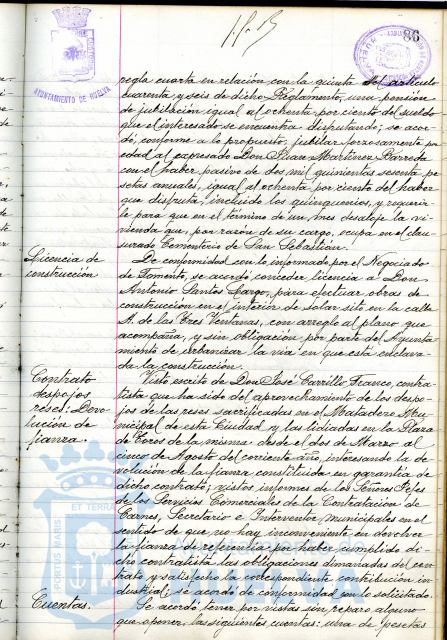 86
AYUNTAMIENTO DE HUELVA
regla cuarta en relación con la quinta del artículo
cuarenta y seis de dicho Reglamento, una pensión
de jubilación igual al ochenta por ciento del sueldo
que el interesado se encuentra disfrutando; se acor-
dó, conforme a lo propuesto, jubilar forzosamente por
edad al expresado Don Juan Martínez Barreda
con el haber pasivo de dos mil quinientas sesenta pe-
setas anuales, igual al ochenta por ciento del haber
que disfruta, incluido los quinquenios, y requerir-
le para que en el término de un mes desaloje la vi-
vienda que, por razón de su cargo, ocupa en el clau-
surado Cementerio de San Sebastián.
Licencia de
construcción
De conformidad con lo informado por el Negociado
de Fomento, se acordó conceder licencia a Don
Antonio Santos para efectuar obras de
construcción en el interior de solar sito en la calle
A. de las Tres Ventanas, con arreglo al plano que
acompaña, y sin obligación por parte del Ayunta-
miento de urbanizar la vía en que está enclava-
da la construcción.
Contrato
despojos
reses. Devo-
lución de
fianza.
Visto escrito de Don José Carrillo Franco, contra-
tista que ha sido del aprovechamiento de los despo-
jos de las reses sacrificadas en el Matadero Mu-
nicipal de esta Ciudad y las lidiadas en la Plaza
de Toros de la misma desde el dos de Marzo al
cinco de Agosto del corriente año, interesando la de-
volución de la fianza constituida en garantía de
dicho contrato; vistos informes de los Señores Jefes
de los Servicios Comerciales de la Contratación de
Carnes, Secretario e Interventor municipales en el
sentido de que no hay inconveniente en devolver
la fianza de referencia por haber cumplido di-
cho contratista las obligaciones dimanadas del con-
trato y satisfecho la correspondiente contribución in-
dustrial, se acordó de conformidad con lo solicitado.
Cuentas.
Se acordó tener por vistas sin reparo alguno
que oponer, las siguientes cuentas: una de pesetas
PORTUS MARIS ET TERRAE